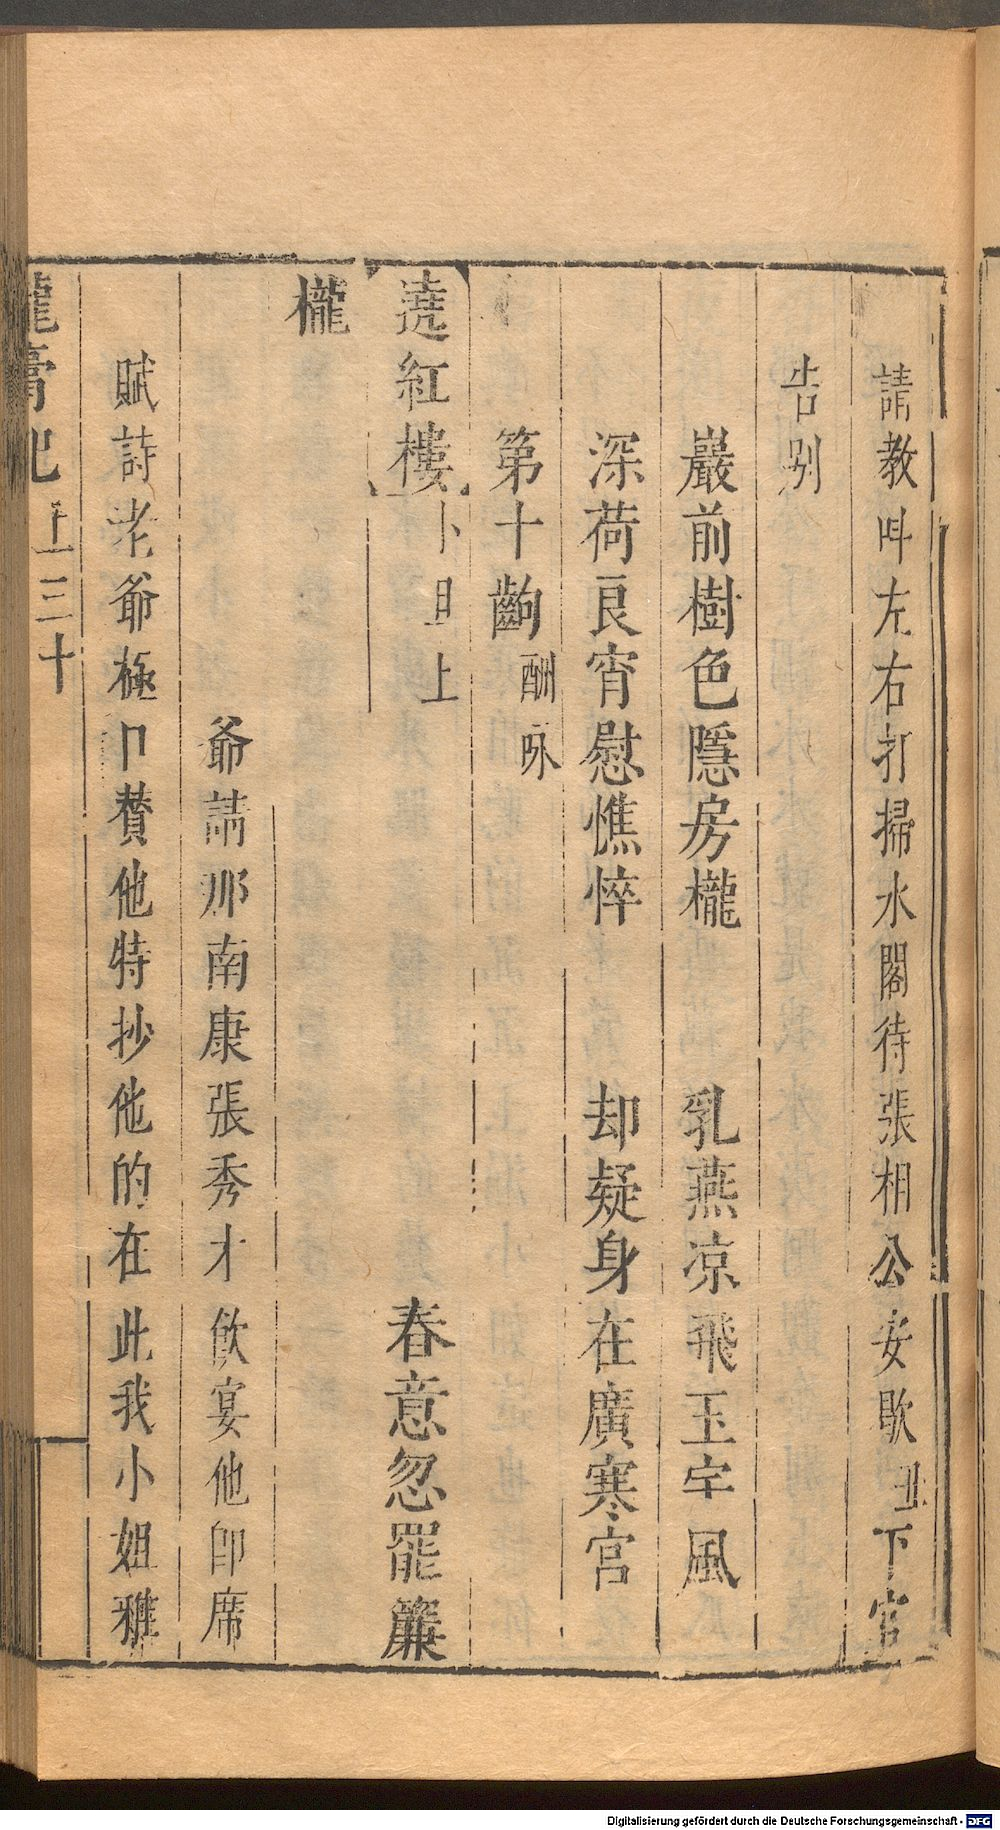 請教叫左右打掃水閣待張相公安歇丑下官
告別
巖前樹色隱房櫳　乳燕凉飛玉宇風
深荷良宵慰憔悴　却疑身在廣寒宮
第十齣 酬咏
遶紅樓 卜旦上　春意忽罷簾
櫳
爺請那南康張秀才飲宴他卽席
賦詩老爺極口賛他特抄他的在此我小姐雅
龍膏記 上 三十
Digitalisierung gefördert durch die Deutsche Forschungsgemeinschaft - DFG